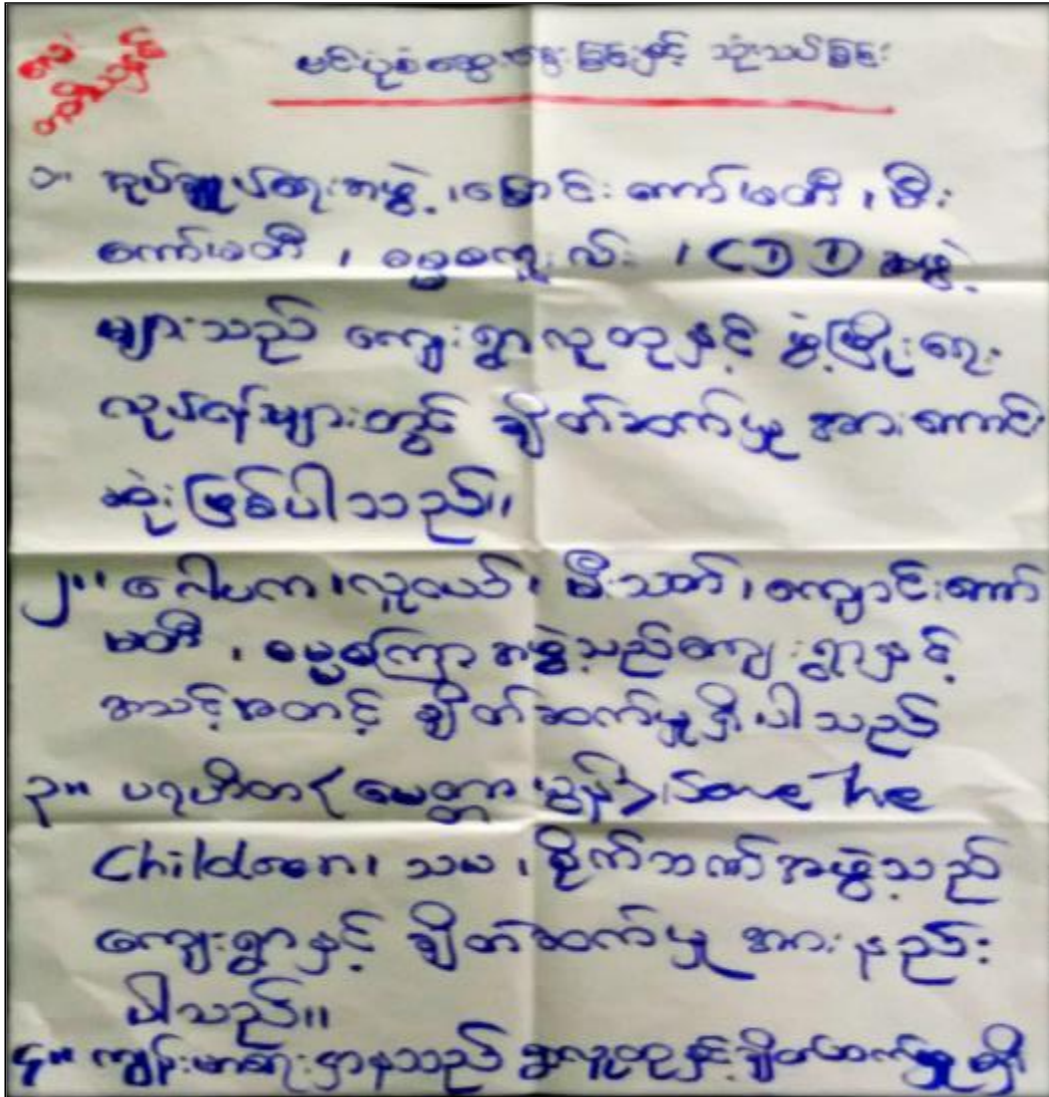 ပင်ပုံစံဆွေးနွေးခြင်းနှင့် သုံးသပ်ခြင်း
၁။ အုပ်ချုပ်ရေးအဖွဲ့၊ ကျောင်းကော်မတီ၊ မီး
ကော်မတီ၊ ဓမ္မစကူးလ်၊ CDD အဖွဲ့
များသည် ကျေးရွာလူထုနှင့် ဖွံ့ဖြိုးရေး
လုပ်ငန်းများတွင် ချိတ်ဆက်မှု အားကောင်း
ဆုံးဖြစ်ပါသည်။
၂။ ဂေါပက၊ လူငယ်၊ မီးသတ်၊ ကျောင်းကော်
မတီ၊ ဓမ္မစကြာအဖွဲ့သည်ကျေးရွာနှင့်
အသင့်အတင့် ချိတ်ဆက်မှုရှိပါသည်
၃။ ပရဟိတ < မေတ္တာမွန် >၊ Save The
Children၊ သမ၊ စိုက်ဘဏ်အဖွဲ့သည်
ကျေးရွာနှင့် ချိတ်ဆက်မှု အားနည်း
ပါသည်။
၄။ ကျန်းမာရေးဌာနသည် ရွာလူထုနှင့်ချိတ်ဆက်မှုရှိ